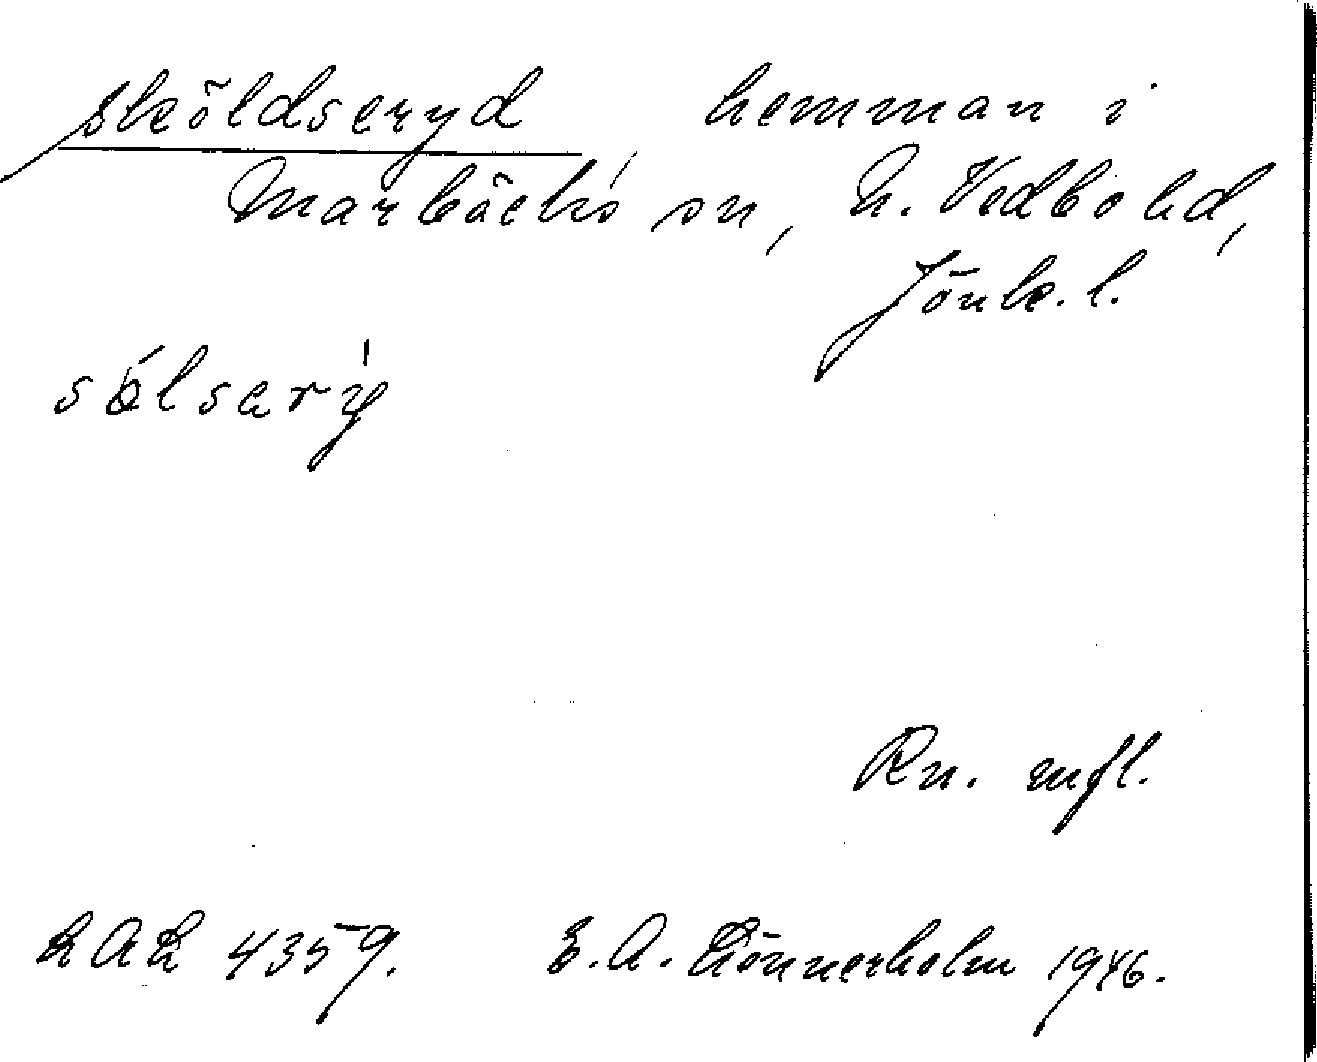 sköldseryd hemman i
Marbäcks sn, N. Vedbo hd,
Jönk. l.
sólsarý
Rn. mfl.
LAL 4359. E. A. Lönnerholm 1946.